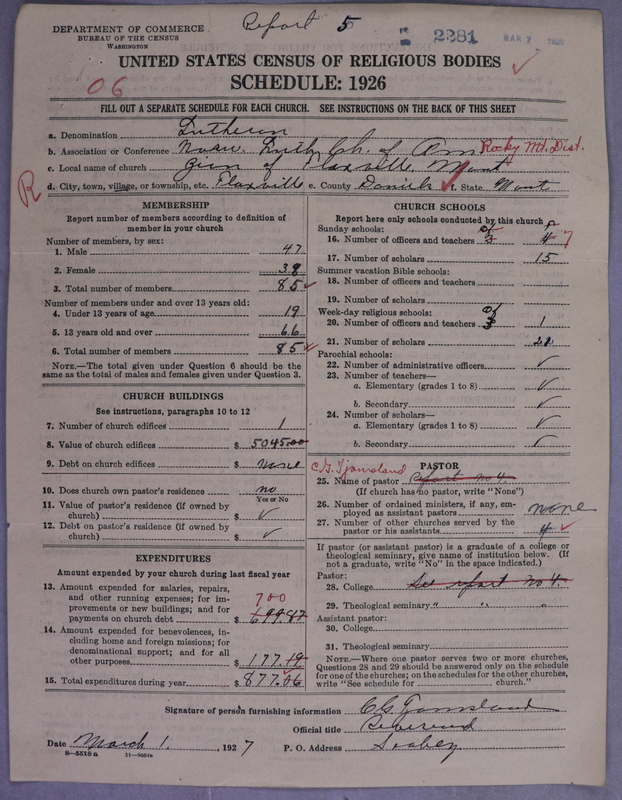 Report 5
DEPARTMENT OF COMMERCE
BUREAU OF THE CENSUS
WASHINGTON
2281
MAR 7
UNITED STATES CENSUS OF RELIGIOUS BODIES
SCHEDULE: 1926
06
FILL OUT A SEPARATE SCHEDULE FOR EACH CHURCH. SEE INSTRUCTIONS ON THE BACK OF THIS SHEET
a. Denomination Lutheran
b. Association or Conference Luth Ch. of Am Rocky Mt. Dist.
c. Local name of church Zion of Plaxville, Mont
R
d. City, town, village, or township, etc. Flaxville e. County Daniels f. State Mont
MEMBERSHIP
Report number of members according to definition of
member in your church
Number of members, by sex:
1. Male 47
2. Female 38
3. Total number of members 85
Number of members under and over 13 years old:
4. Under 13 years of age 19
5. 13 years old and over 66
6. Total number of members 85
NOTE.—The total given under Question 6 should be the
same as the total of males and females given under Question 3.
CHURCH BUILDINGS
See instructions, paragraphs 10 to 12
7. Number of church edifices 1
8. Value of church edifices $ 5045.00
9. Debt on church edifices $ none
10. Does church own pastor's residence no
Yes or No
11. Value of pastor's residence (if owned by
church) $ ✓
12. Debt on pastor's residence (if owned by
church) $ ✓
EXPENDITURES
Amount expended by your church during last fiscal year
13. Amount expended for salaries, repairs,
and other running expenses; for im-
provements or new buildings; and for
payments on church debt $ 699.87
700
14. Amount expended for benevolences, in-
cluding home and foreign missions; for
denominational support; and for all
other purposes $ 177.19
15. Total expenditures during year $ 877.06
CHURCH SCHOOLS
Report here only schools conducted by this church
Sunday schools:
16. Number of officers and teachers 4 7
17. Number of scholars 15
Summer vacation Bible schools:
18. Number of officers and teachers
19. Number of scholars
Week-day religious schools:
20. Number of officers and teachers 1
21. Number of scholars 21
Parochial schools:
22. Number of administrative officers ✓
23. Number of teachers—
a. Elementary (grades 1 to 8) ✓
b. Secondary ✓
24. Number of scholars—
a. Elementary (grades 1 to 8) ✓
b. Secondary ✓
PASTOR
C. G. Tjomsland
25. Name of pastor Report No 4.
(If church has no pastor, write "None")
26. Number of ordained ministers, if any, em-
ployed as assistant pastors none
27. Number of other churches served by the
pastor or his assistants 4
If pastor (or assistant pastor) is a graduate of a college or
theological seminary, give name of institution below. (If
not a graduate, write "No" in the space indicated.)
Pastor:
28. College See report No 4.
29. Theological seminary " " "
Assistant pastor:
30. College
31. Theological seminary
NOTE.—Where one pastor serves two or more churches,
Questions 28 and 29 should be answered only on the schedule
for one of the churches; on the schedules for the other churches,
write "See schedule for church."
Signature of person furnishing information C. G. Tjomsland
Official title Reverend
Date March 1, 1927 P. O. Address Scobey
8—5518a 11—9054a